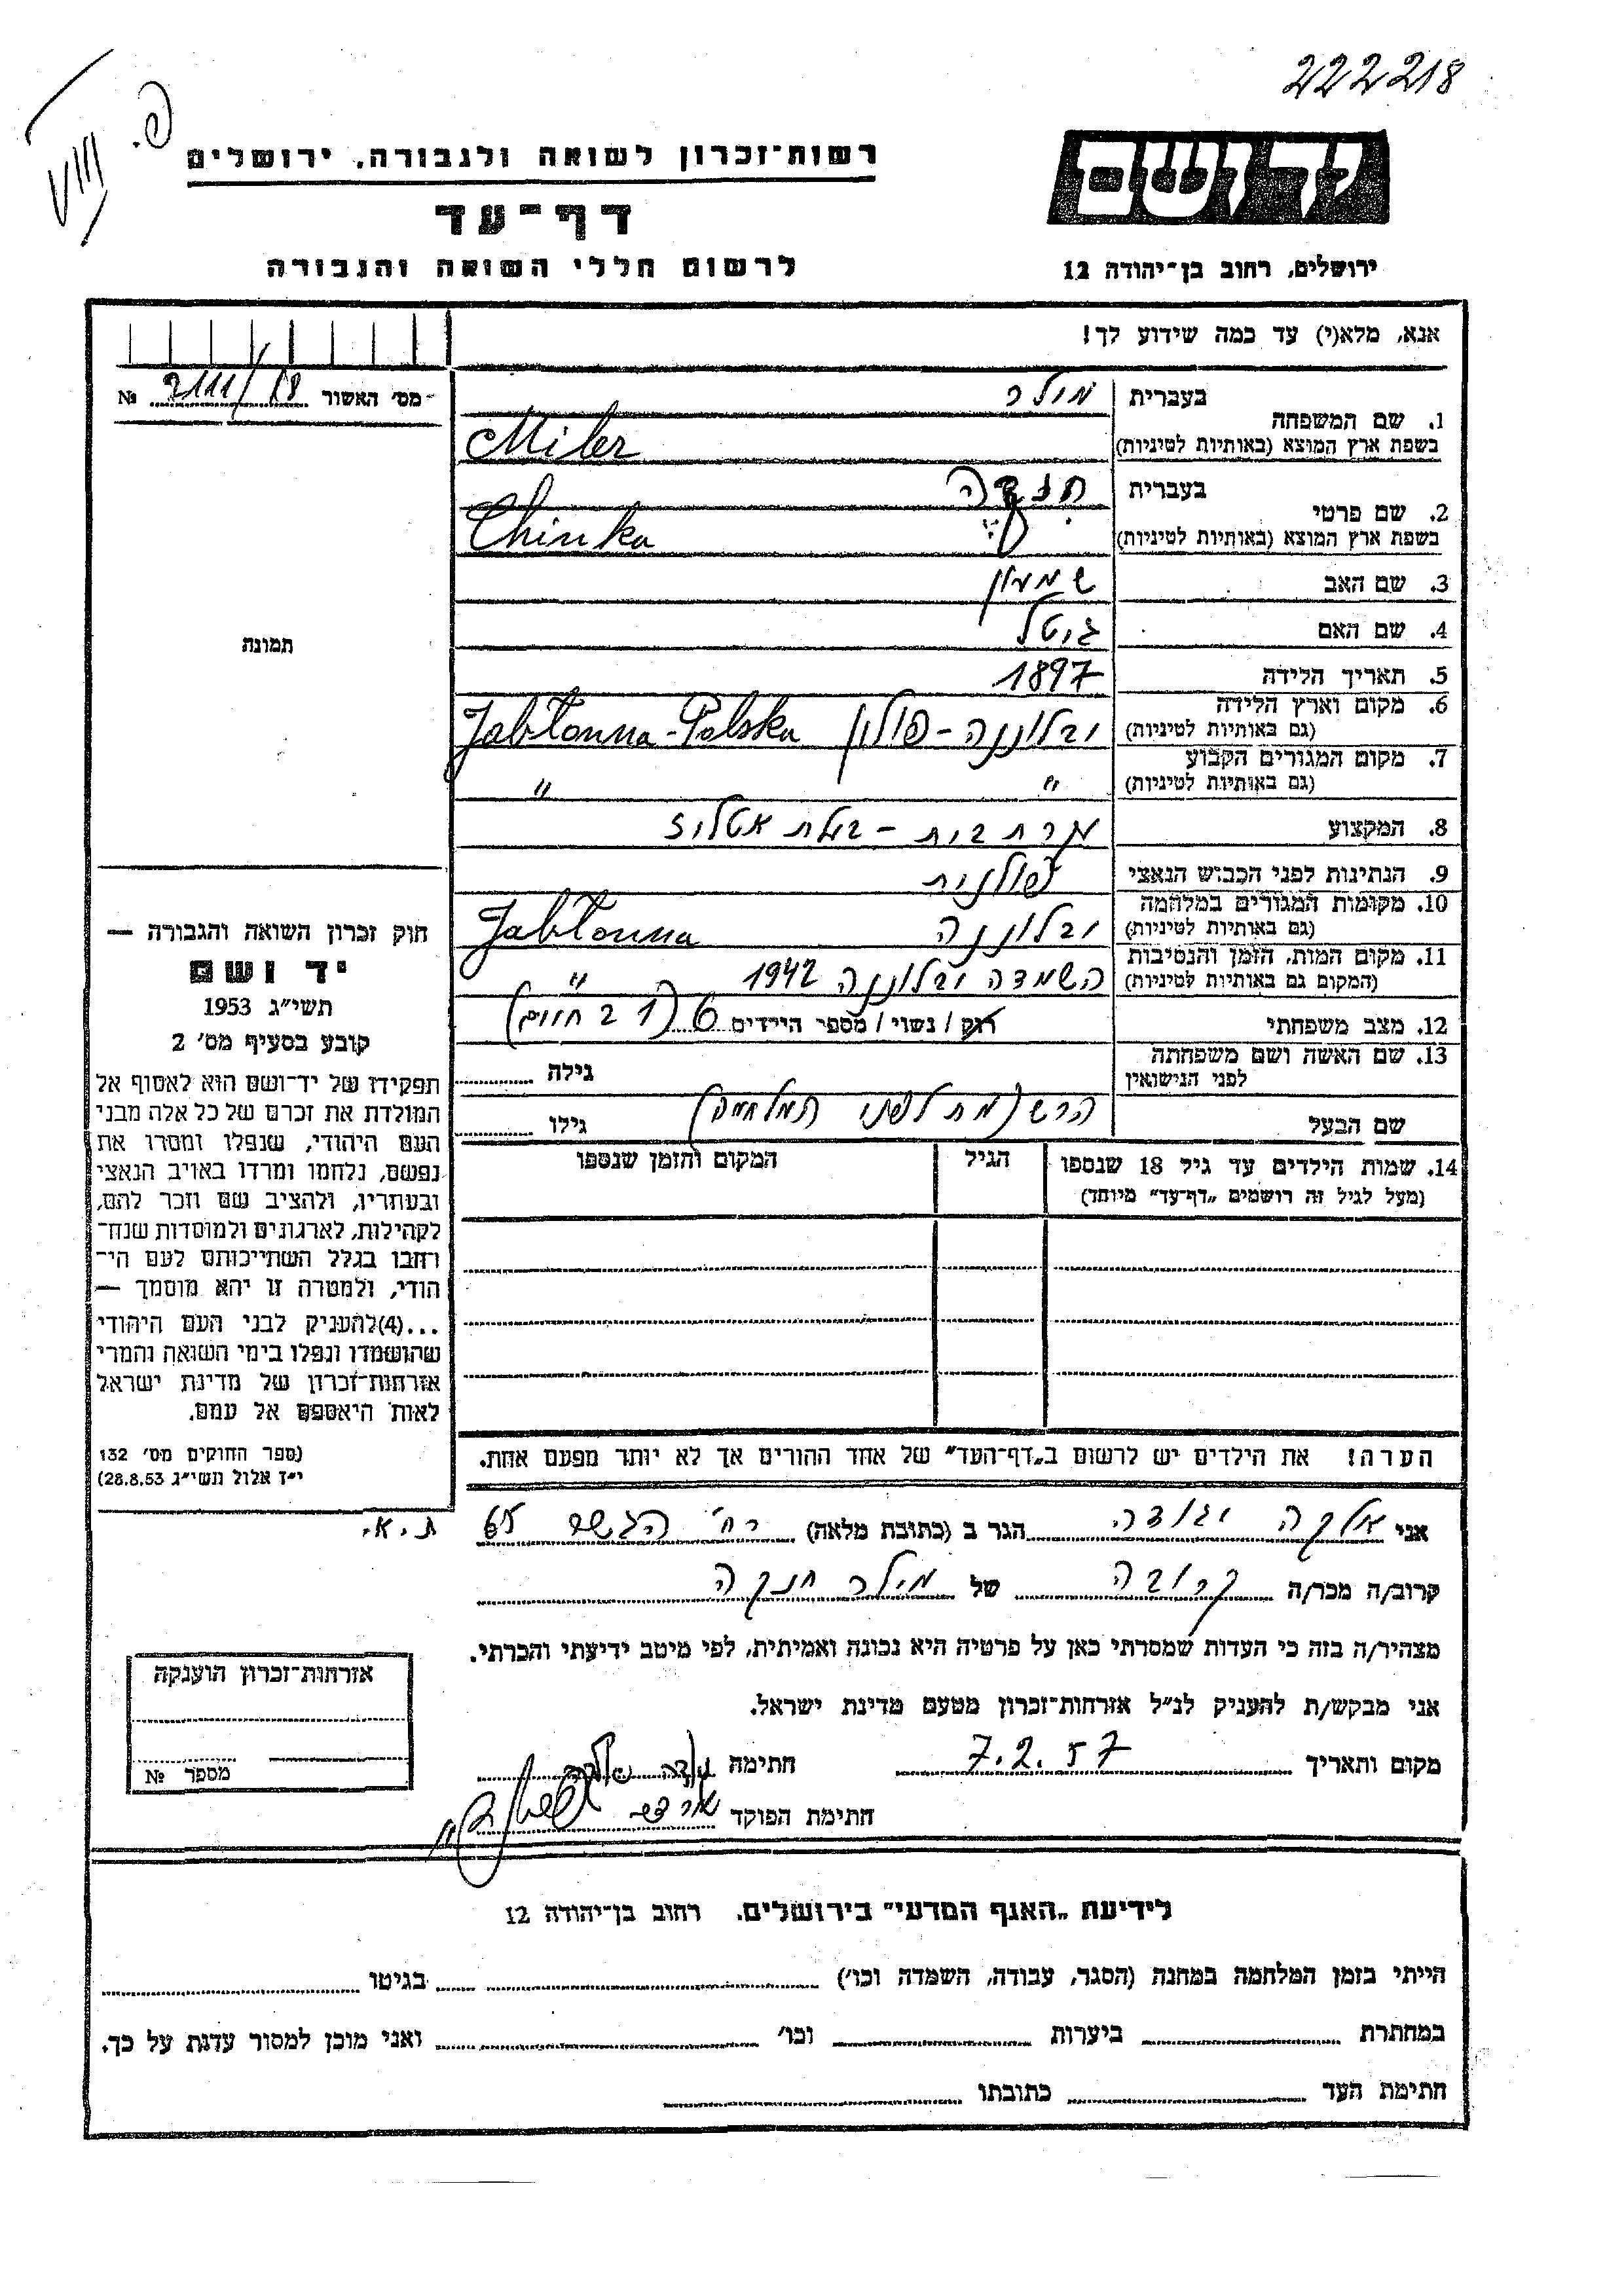 222218
פ.
VIII
רשות־זכרון לשואה ולגבורה, ירושלים
יד ושם
דף־עד
לרשום חללי השואה והגבורה
ירושלים, רחוב בן־יהודה 12
אנא, מלא(י) עד כמה שידוע לך!
מס' האשור 2111/18 №
1. שם המשפחה
בעברית מילר
בשפת ארץ המוצא (באותיות לטיניות) Miler
2. שם פרטי
בעברית
בשפת ארץ המוצא (באותיות לטיניות) Chinka
3. שם האב שמעון
4. שם האם גיטל
5. תאריך הלידה 1897
6. מקום וארץ הלידה יבלוננה - פולין Jabłonna-Polska
(גם באותיות לטיניות)
7. מקום המגורים הקבוע " "
(גם באותיות לטיניות)
8. המקצוע עקרת בית - בעלת אטליז
9. הנתינות לפני הכבוש הנאצי פולנית
10. מקומות המגורים במלחמה יבלוננה Jabłonna
(גם באותיות לטיניות)
11. מקום המות, הזמן והנסיבות השמדה יבלוננה 1942 "
(המקום גם באותיות לטיניות)
12. מצב משפחתי רוק / נשוי / מספר הילדים 6 (2 חיים)
13. שם האשה ושם משפחתה
לפני הנישואין
גילה
שם הבעל הרש (מת לפני המלחמה) גילו
14. שמות הילדים עד גיל 18 שנספו
(מעל לגיל זה רושמים „דף־עד" מיוחד)
הגיל
המקום והזמן שנספו
תמונה
חוק זכרון השואה והגבורה —
יד ושם
תשי"ג 1953
קובע בסעיף מס' 2
תפקידו של יד־ושם הוא לאסוף אל
המולדת את זכרם של כל אלה מבני
העם היהודי, שנפלו ומסרו את
נפשם, נלחמו ומרדו באויב הנאצי
ובעוזריו, ולהציב שם וזכר להם,
לקהילות, לארגונים ולמוסדות שנח־
רבו בגלל השתייכותם לעם הי־
הודי, ולמטרה זו יהא מוסמך —
...(4)להעניק לבני העם היהודי
שהושמדו ונפלו בימי השואה והמרי
אזרחות־זכרון של מדינת ישראל
לאות היאספם אל עמם.
(ספר החוקים מס' 132
י"ז אלול תשי"ג 28.8.53)
הערה! את הילדים יש לרשום ב„דף־העד" של אחד ההורים אך לא יותר מפעם אחת.
אני אלקה יהודה הגר ב (כתובת מלאה) רח' הגשר 65 ת.א.
קרוב/ה מכר/ה קרובה של מילר חנקה
מצהיר/ה בזה כי העדות שמסרתי כאן על פרטיה היא נכונה ואמיתית, לפי מיטב ידיעתי והכרתי.
אני מבקש/ת להעניק לנ"ל אזרחות־זכרון מטעם מדינת ישראל.
מקום ותאריך 7.2.57 חתימה
חתימת הפוקד
אזרחות־זכרון הוענקה
מספר №
לידיעת „האגף המדעי" בירושלים, רחוב בן־יהודה 12
הייתי בזמן המלחמה במחנה (הסגר, עבודה, השמדה וכו') בגיטו
במחתרת ביערות וכו' ואני מוכן למסור עדות על כך.
חתימת העד כתובתו